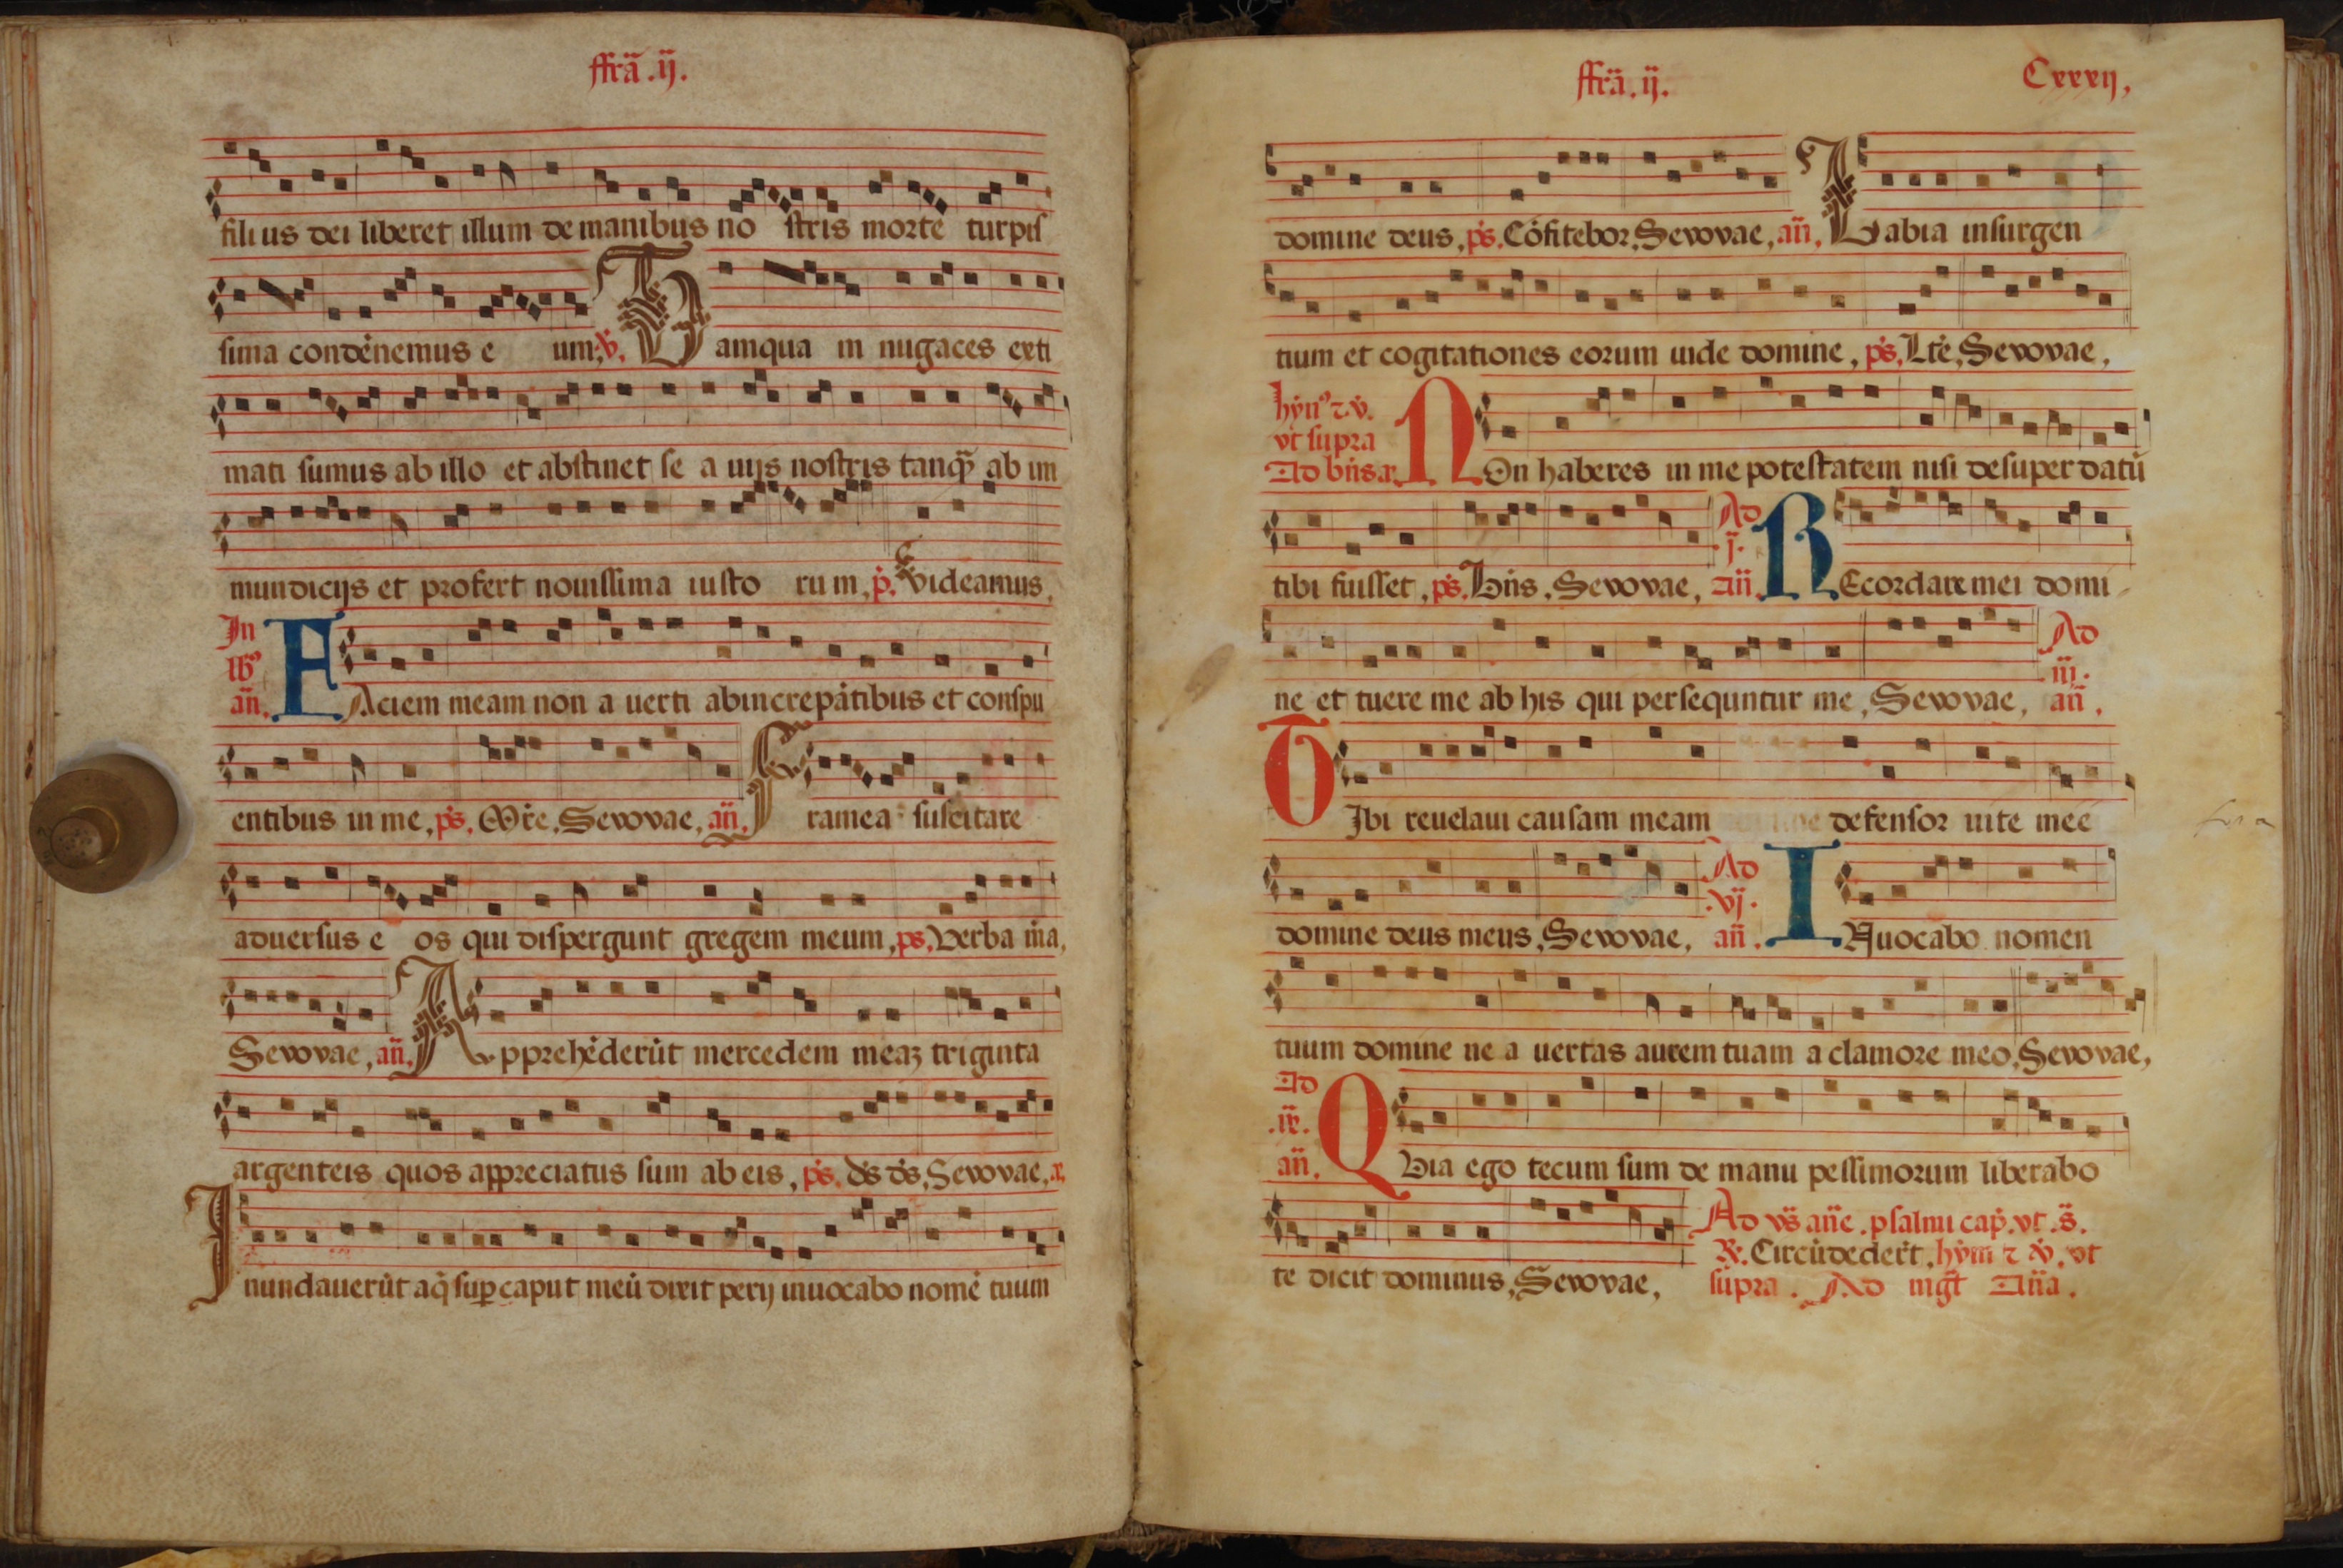 ffra᷑ .ij.
filius dei liberet illum de manibus no stris morte turpis
sima condēnemus e um, v̇. Tamqua m nugaces exti
mati sumus ab illo et abstinet se a uijs nostris tanq̄ ab im
mundicijs et profert nouissima iusto rum, p̄. videamus,
In
lꝰ
an̄. FAciem meam non a uerti ab increpātibus et conspu
entibus in me, ps̄. Mr̄e, Sevovae, an̄. Framea suscitare
aduersus e os qui dispergunt gregem meum, ps, Verba m̄a,
Sevovae, an̄. Apprehēderūt mercedem meaʒ triginta
argenteis quos appreciatus sum ab eis, ps̄. ds̄ ds̄, Sevovae, a.
Inundauerūt aq̄ suꝑ caput meū dixit perij inuocabo nomē tuum
ffra᷑ .ij. Cxxxij,
domine deus, ps̄. Cōfitebor, Sevovae, an̄, Labia insurgen
tium et cogitationes eorum uide domine, ps̄, Lt̄e, Sevovae,
hȳnꝰ ⁊ v̄.
vt supra
Ad bn̄s a. NOn haberes in me potestatem nisi desuper datū
tibi fuisset, ps̄. Bn̄s. Sevovae, Ad .j. an̄. REcordare mei domi
ne et tuere me ab his qui persequntur me, Sevovae, Ad .iij. an̄.
TIbi reuelaui causam meam defensor uite mee
domine deus meus, Sevovae, Ad .vj. an̄. INuocabo nomen
tuum domine ne a uertas aurem tuam a clamore meo, Sevovae,
Ad
.ix.
an̄. QVia ego tecum sum de manu pessimorum liberabo
te dicit dominus, Sevovae,
Ad vs̄ an̄e. psalmi cap̄. vt .s̄.
℞. Circūdeder̄t, hȳm ⁊ v̄, vt
supra. Ad mḡt An̄a.